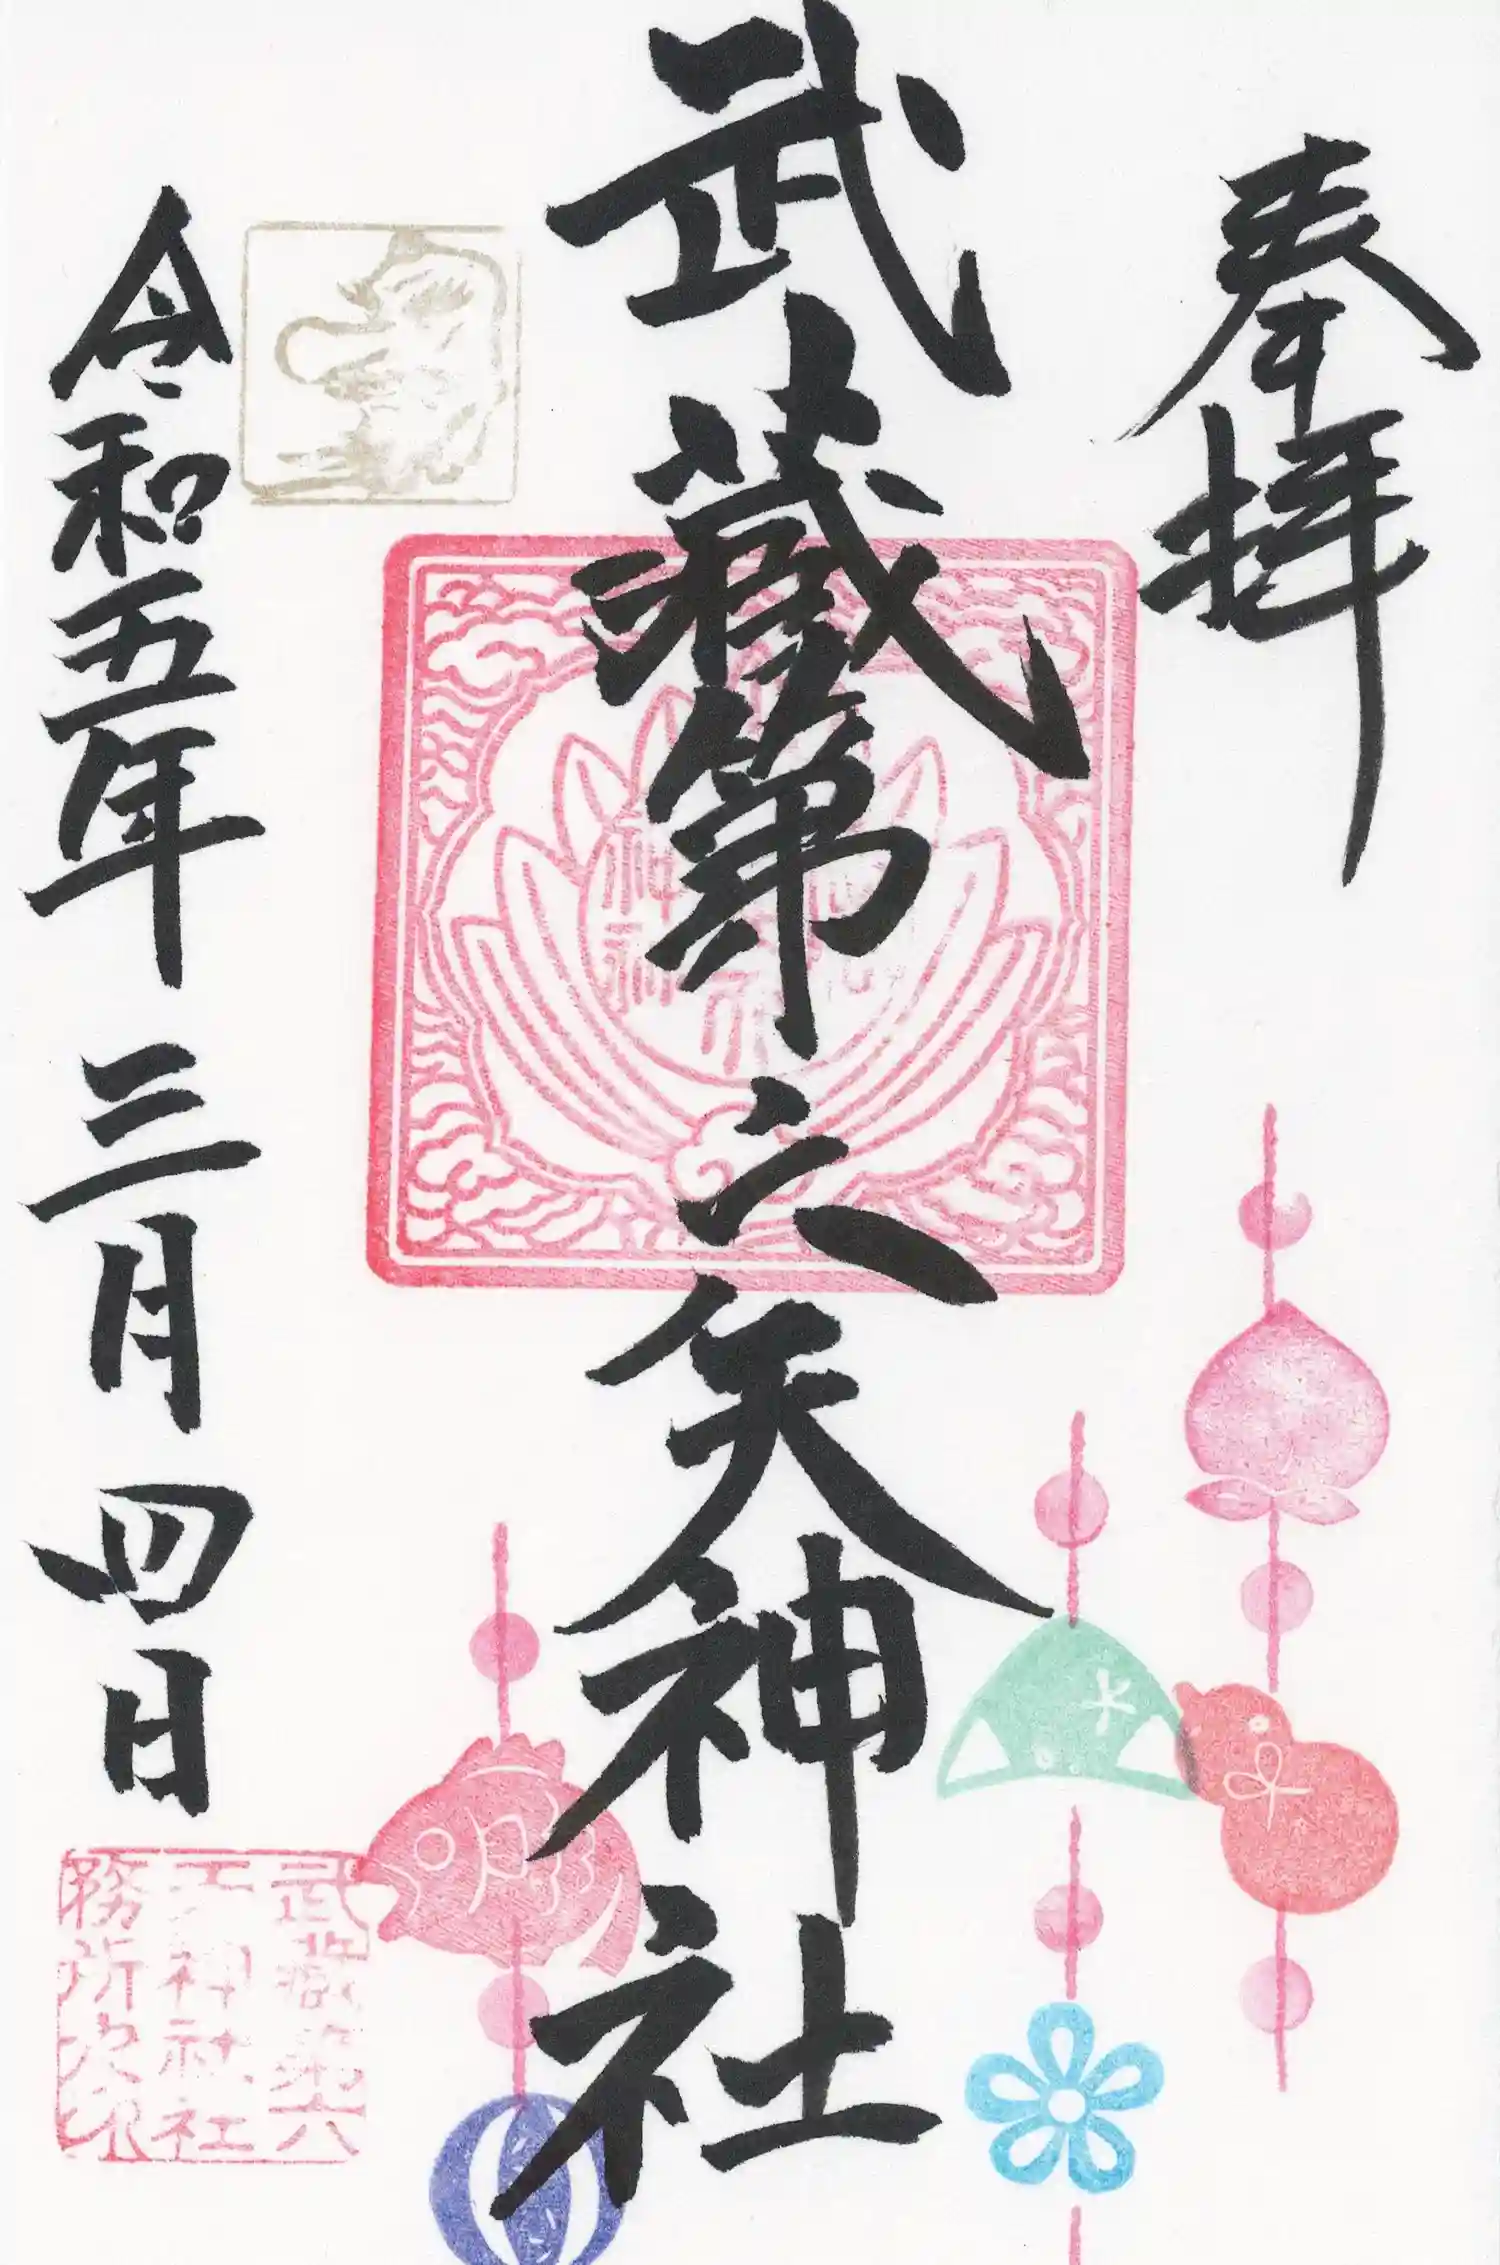 奉拝
武藏第六天神社
令和五年三月四日
武藏第六
天神社社
務所之印